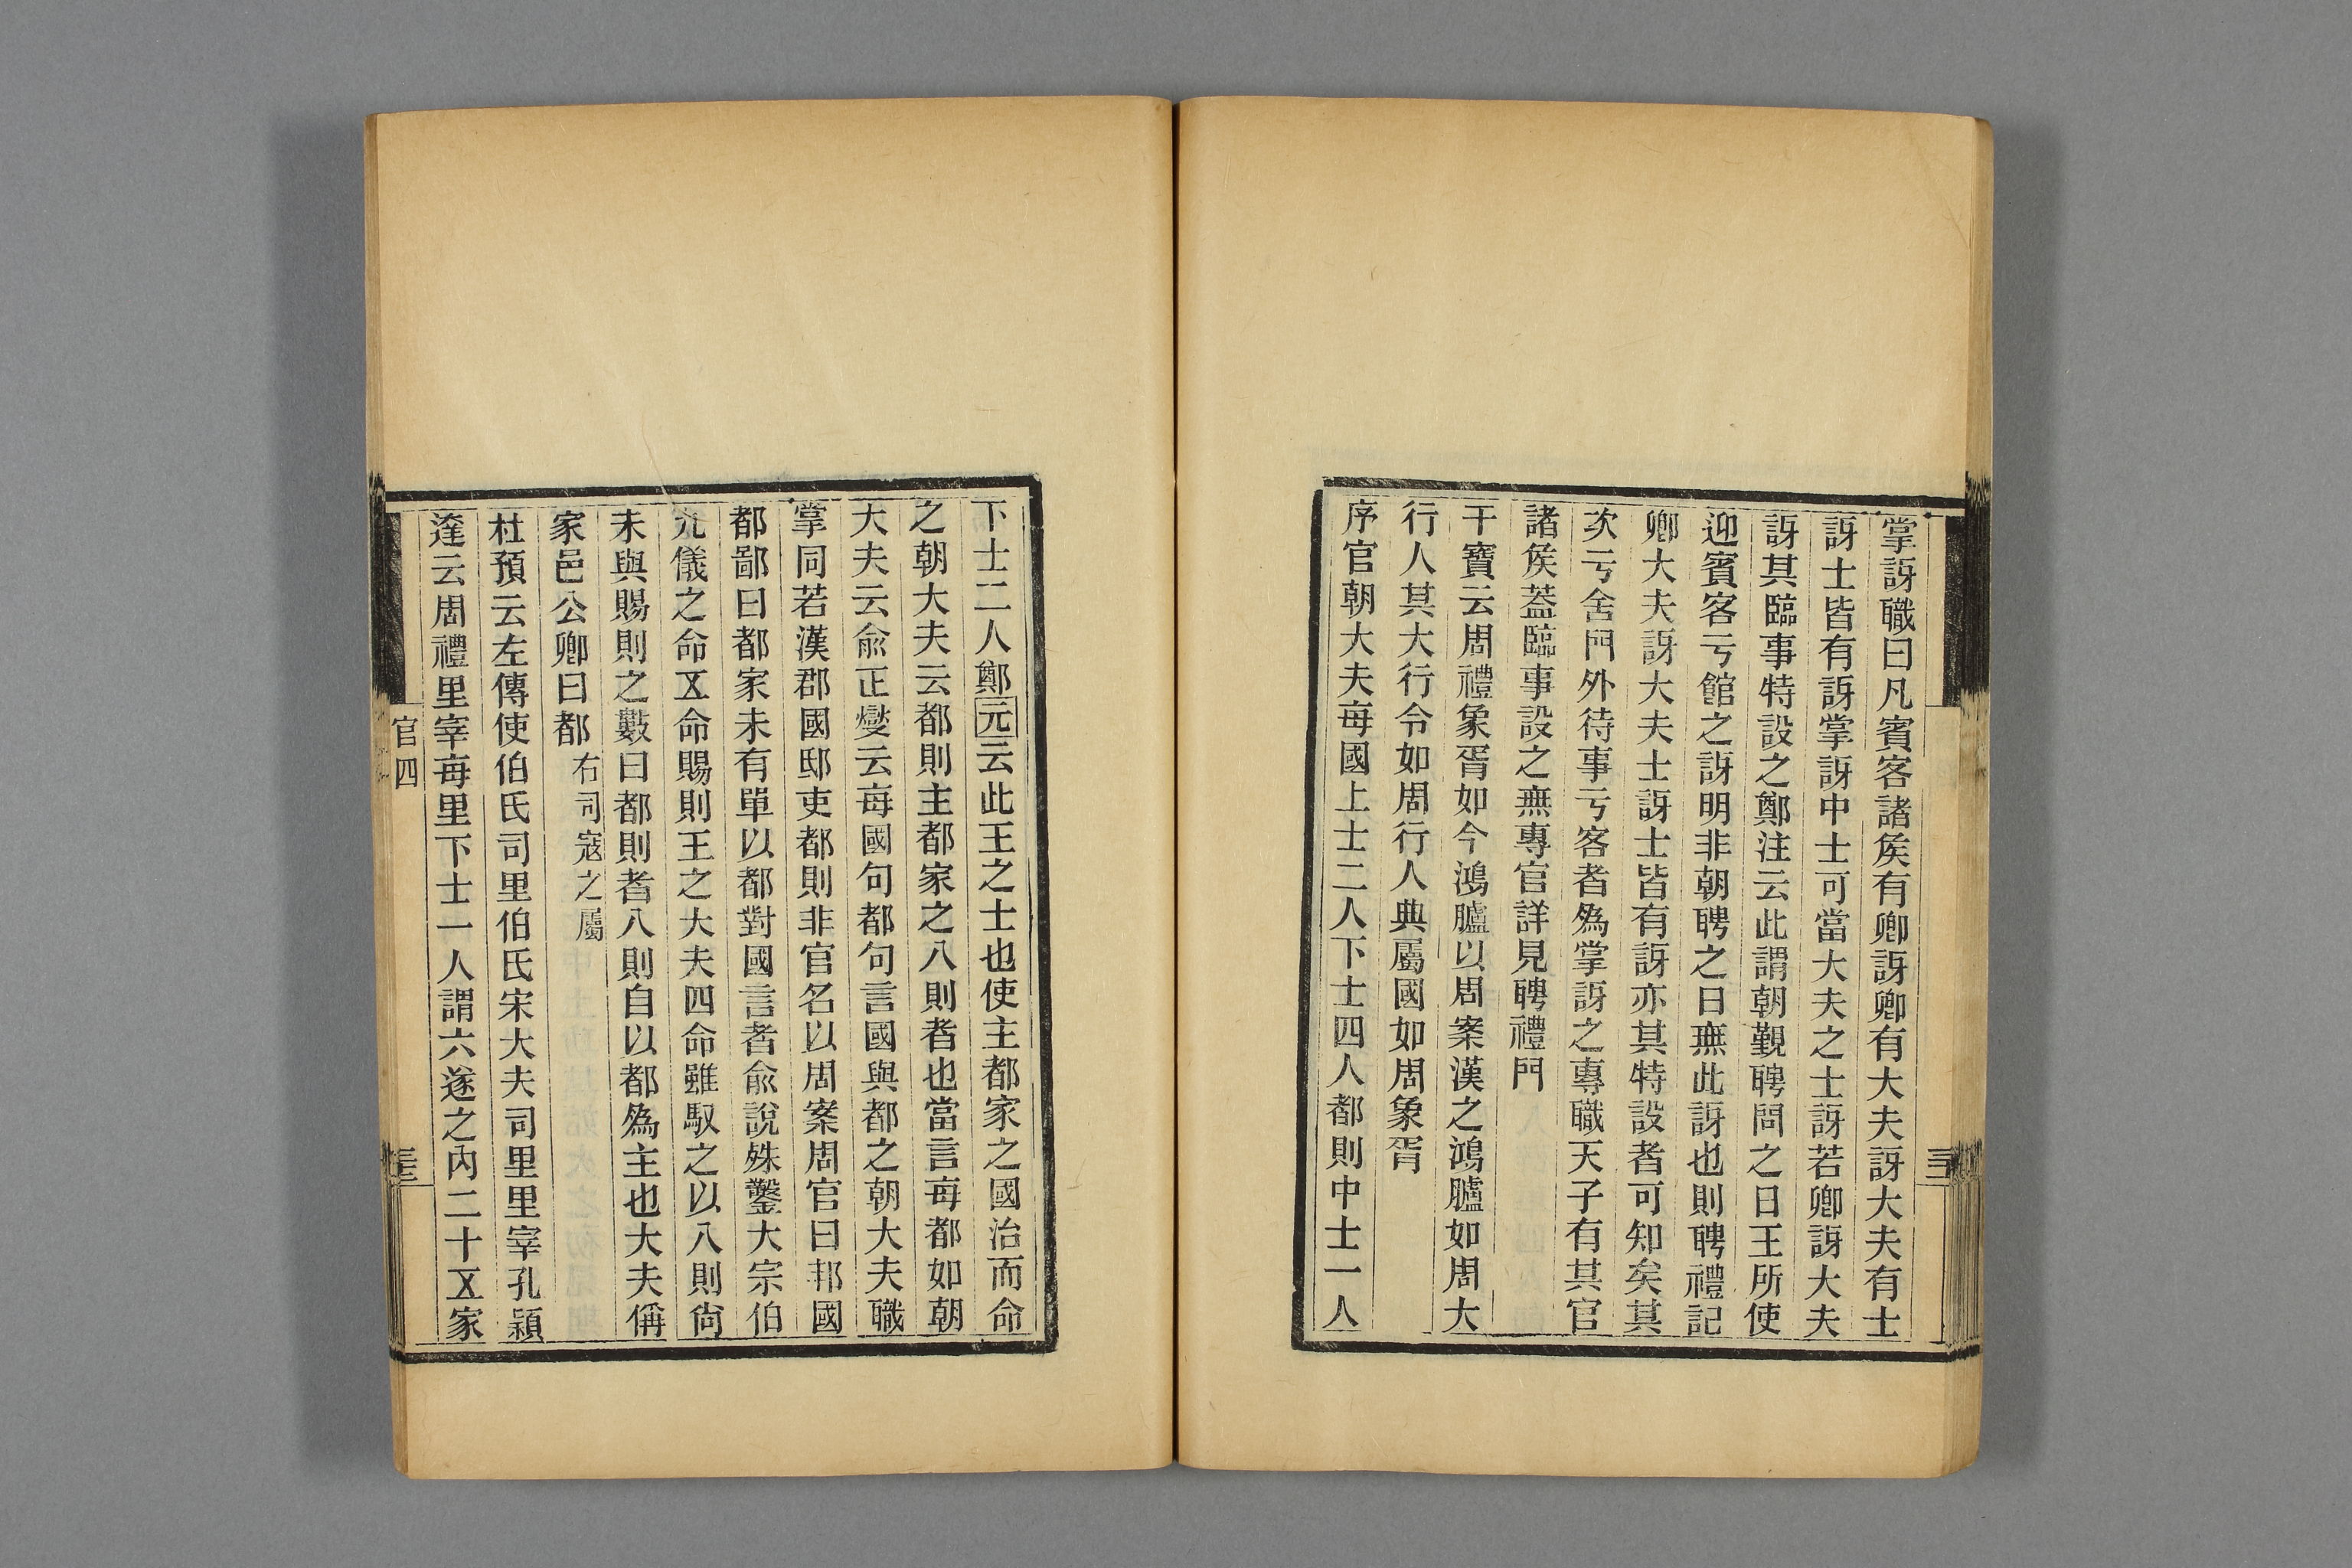 掌訝職曰凡賓客諸矦有卿訝卿有大夫訝大夫有士
訝士皆有訝掌訝中士可當大夫之士訝若卿訝大夫
訝其臨事特設之鄭注云此謂朝覲聘問之日王所使
迎賓客亏館之訝明非朝聘之日無此訝也則聘禮記
卿大夫訝大夫士訝士皆有訝亦其特設者可知矣其
次亏舍門外待事亏客者爲掌訝之專職天子有其官
諸矦葢臨事設之無專官詳見聘禮門
干寶云周禮象胥如今鴻臚以周案漢之鴻臚如周大
行人其大行令如周行人典屬國如周象胥
序官朝大夫每國上士二人下士四人都則中士一人
下士二人鄭元云此王之士也使主都家之國治而命
之朝大夫云都則主都家之八則者也當言每都如朝
大夫云兪正燮云每國句都句言國與都之朝大夫職
掌同若漢郡國邸吏都則非官名以周案周官曰邦國
都鄙曰都家未有單以都對國言者兪說殊鑿大宗伯
九儀之命五命賜則王之大夫四命雖馭之以八則尙
未與賜則之數曰都則者八則自以都爲主也大夫偁
家邑公卿曰都右司寇之屬
杜預云左傳使伯氏司里伯氏宋大夫司里里宰孔穎
達云周禮里宰每里下士一人謂六遂之內二十五家
官四